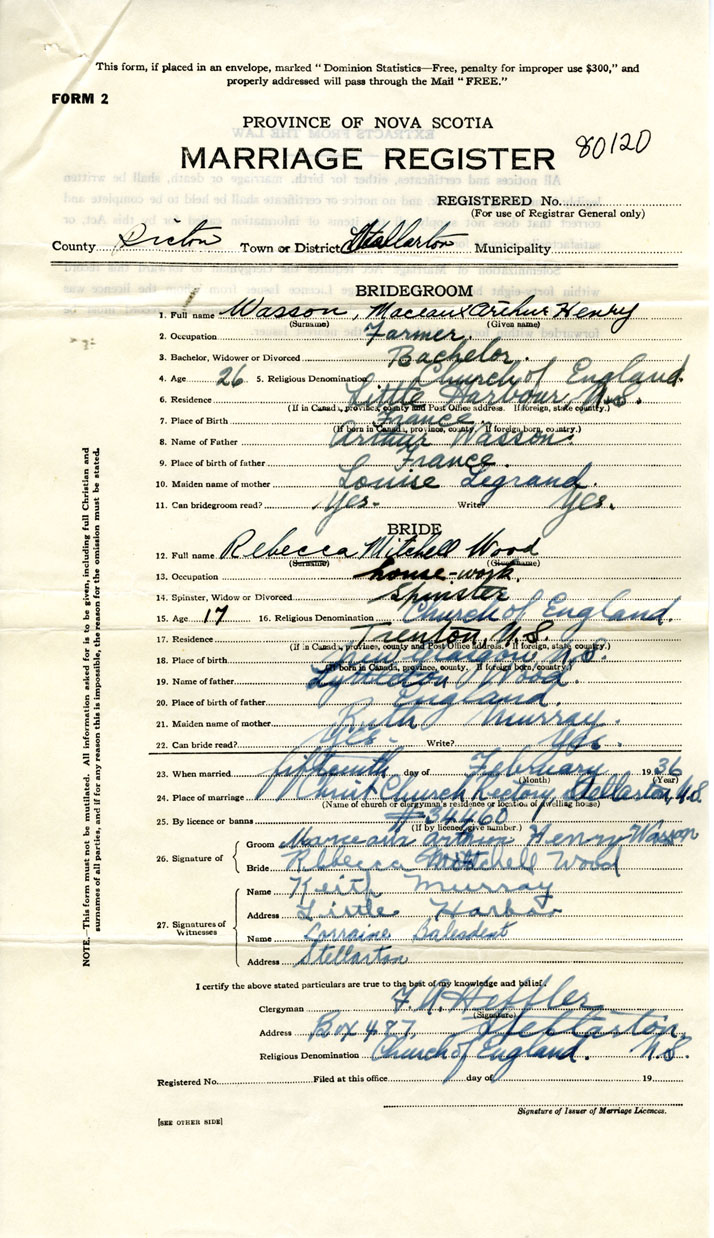 This form, if placed in an envelope, marked "Dominion Statistics—Free, penalty for improper use $300," and
properly addressed will pass through the Mail "FREE."
FORM 2
PROVINCE OF NOVA SCOTIA
MARRIAGE REGISTER 80120
REGISTERED No.
(For use of Registrar General only)
County Pictou Town or District Stellarton Municipality
BRIDEGROOM
1. Full name Wasson, Maceaux Arthur Henry
(Surname) (Given name)
2. Occupation Farmer
3. Bachelor, Widower or Divorced Bachelor.
4. Age 26 5. Religious Denomination Church of England.
6. Residence Little Harbour, N.S.
(If in Canada, province, county and Post Office address. If foreign, state country.)
7. Place of Birth France
(If born in Canada, province, county. If foreign born, country.)
8. Name of Father Arthur Wasson.
9. Place of birth of father France.
10. Maiden name of mother Louise Legrand.
11. Can bridegroom read? Yes- Write? Yes.
BRIDE
12. Full name Rebecca Mitchell Wood
(Surname) (Given name)
13. Occupation house-work.
14. Spinster, Widow or Divorced Spinster
15. Age 17 16. Religious Denomination Church of England.
17. Residence Trenton, N.S.
(If in Canada, province, county and Post Office address. If foreign, state country.)
18. Place of birth N.S.
(If born in Canada, province, county. If foreign born, country.)
19. Name of father Wood.
20. Place of birth of father England.
21. Maiden name of mother Ruth Murray.
22. Can bride read? Yes- Write? Yes.
23. When married fifteenth day of February 1936
(Month) (Year)
24. Place of marriage Christ Church Rectory Stellarton, N.S.
(Name of church or clergyman's residence or location of dwelling house)
25. By licence or banns #34460
(If by licence, give number.)
26. Signature of Groom Marceaux Arthur Henry Wasson
Bride Rebecca Mitchell Wood
27. Signatures of Witnesses Name Keith Murray
Address Little Harbor
Name Lorraine Balesdent
Address Stellarton
I certify the above stated particulars are true to the best of my knowledge and belief.
Clergyman F. A. Heffler
(Signature)
Address Box 487, Stellarton,
Religious Denomination Church of England. N.S.
Registered No. Filed at this office day of 19
Signature of Issuer of Marriage Licences.
[SEE OTHER SIDE]
NOTE.—This form must not be mutilated. All information asked for is to be given, including full Christian and
surnames of all parties, and if for any reason this is impossible, the reason for the omission must be stated.